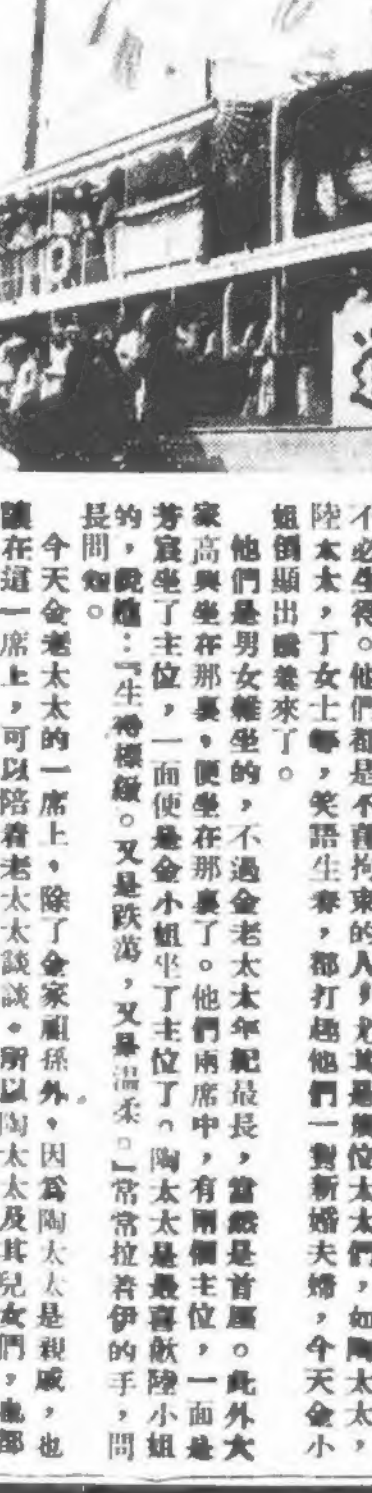 不必生得。他們都是不喜拘束的人，尤其是幾位太太們，如陶太太，
陸太太，丁女士等，笑語生春，都打趣他們一對新婚夫婦，今天金小
姐倒顯出嬌羞來了。
他們是男女雜坐的，不過金老太太年紀最長，當然是首座。此外大
家高興坐在那裏，便坐在那裏了。他們兩席中，有兩個主位，一面是
芳宸坐了主位，一面便是金小姐坐了主位了。陶太太是最喜歡陸小姐
的，說她：『生得標緻。又是跌蕩，又是溫柔。』常常拉着伊的手，問
長問短。
今天金老太太的一席上，除了金家祖孫外，因爲陶太太是親戚，也
讓在這一席上，可以陪着老太太談談。所以陶太太及其兒女們，也都